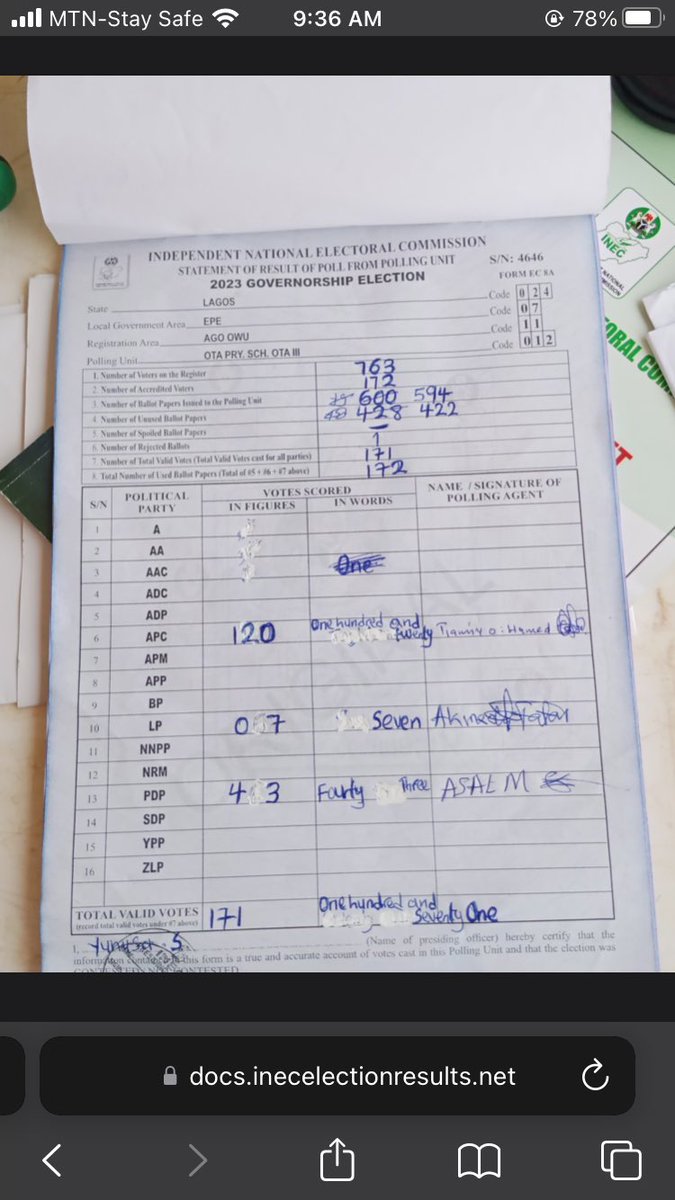 MTN-Stay Safe 9:36 AM 78%
INDEPENDENT NATIONAL ELECTORAL COMMISSION
STATEMENT OF RESULT OF POLL FROM POLLING UNIT S/N: 4646
2023 GOVERNORSHIP ELECTION FORM EC 8A
State LAGOS Code 0 2 4
Local Government Area EPE Code 0 7
Registration Area AGO OWU Code 1 1
Polling Unit OTA PRY. SCH. OTA III Code 0 1 2
1. Number of Voters on the Register 763
2. Number of Accredited Voters 172
3. Number of Ballot Papers Issued to the Polling Unit 600 594
4. Number of Unused Ballot Papers 428 422
5. Number of Spoiled Ballot Papers –
6. Number of Rejected Ballots 1
7. Number of Total Valid Votes (Total Valid Votes cast for all parties) 171
8. Total Number of Used Ballot Papers (Total of #5 + #6 + #7 above) 172
S/N POLITICAL PARTY VOTES SCORED IN FIGURES IN WORDS NAME / SIGNATURE OF POLLING AGENT
1 A
2 AA
3 AAC One
4 ADC
5 ADP
6 APC 120 One hundred and twenty
7 APM
8 APP
9 BP
10 LP 0 7 Seven
11 NNPP
12 NRM
13 PDP 4 3 Fourty Three ASAL M
14 SDP
15 YPP
16 ZLP
TOTAL VALID VOTES 171 One hundred and Seventy One
(record total valid votes under #7 above)
1, S (Name of presiding officer) hereby certify that the
information contained in this form is a true and accurate account of votes cast in this Polling Unit and that the election was
CONTESTED/NOT CONTESTED
INEC
NATIONAL
docs.inecelectionresults.net